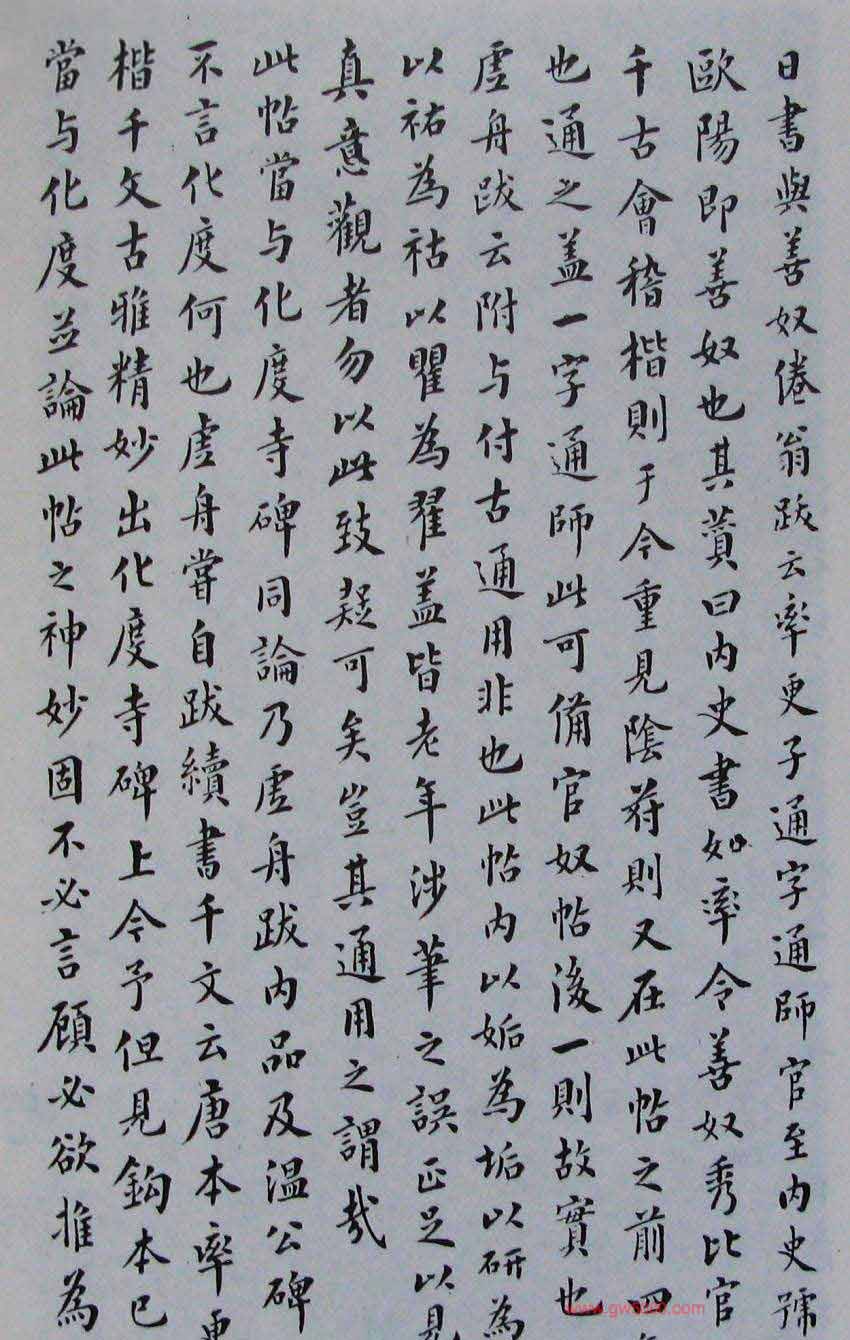 日書與善奴倦翁跋云率更子通字通師官至内史號
歐陽即善奴也其蕒曰内史書如率令善奴秀比官
千古會稽楷則于今重見陰符則又在此帖之前四
也通之蓋一字通師此可備官奴帖後一則故實也
虛舟跋云附与付古通用非也此帖内以姤為垢以研為
以祐為祜以瞿為翟蓋皆老年涉筆之誤正足以見
真意觀者勿以此致疑可矣豈其通用之謂哉
此帖當与化度寺碑同論乃虛舟跋内品及温公碑
不言化度何也虛舟嘗自跋續書千文云唐本率更
楷千文古雅精妙出化度寺碑上今予但見鈎本已
當与化度並論此帖之神妙固不必言顧必欲推為